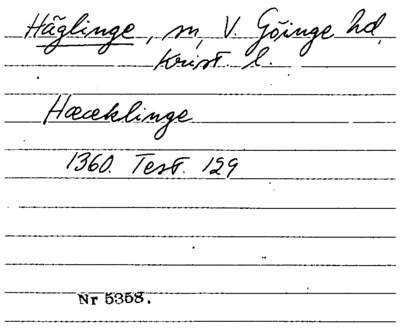 Häglinge, sn, V. Göinge hd,
Krist. l.
Hææklinge
1360. Test. 129
Nr 5358.